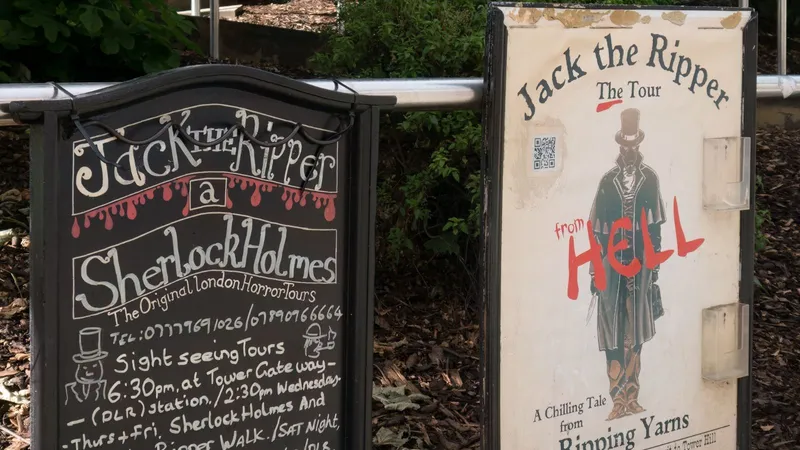 Jack THE Ripper
a
Sherlock Holmes
The Original London Horror Tours
TEL: 0777969 1026/07890966664
Sight seeing Tours
6:30pm, at Tower Gateway-
-(DLR) station./2:30pm Wednesday
Thurs + fri, Sherlock Holmes And
Ripper WALK./SAT Night,
Jack the Ripper
The Tour
from
HELL
A Chilling Tale
from
Ripping Yarns
to Tower Hill